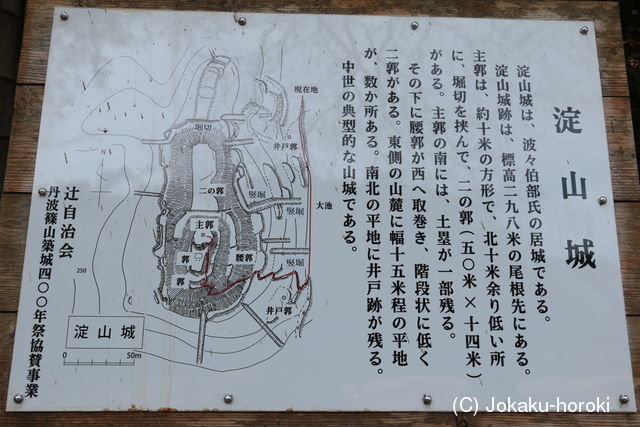 淀山城
淀山城は、波々伯部氏の居城である。
淀山城跡は、標高二九八米の尾根先にある。
主郭は、約十米の方形で、北十米余り低い所
に、堀切を挟んで、二の郭（五〇米×十四米）
がある。主郭の南には、土塁が一部残る。
その下に腰郭が西へ取巻き、階段状に低く
二郭がある。東側の山麓に幅十五米程の平地
が、数か所ある。南北の平地に井戸跡が残る。
中世の典型的な山城である。
現在地
堀切
井戸郭
二の郭
竪堀
竪堀
大池
主郭
郭
郭
腰郭
竪堀
井戸郭
250
淀山城
0
50m
辻自治会
丹波篠山築城四〇〇年祭協賛事業
(C) Jokaku-horoki